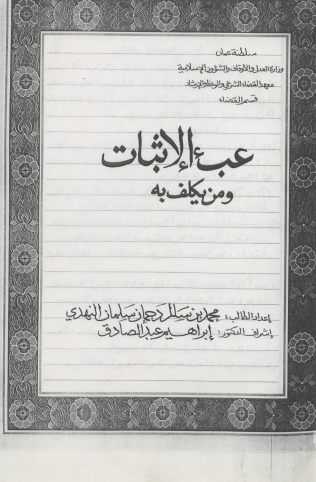 سلطنة عمان
وزارة العدل والأوقاف والشؤون الإسلامية
معهد القضاء الشرعي والوعظ والإرشاد
قسم القضاء
عبء الإثبات
ومن يكلف به
إعداد الطالب: محمد بن سالم دحمان سليمان النهدي
بإشراف الدكتور: إبراهيم عبد الصادق